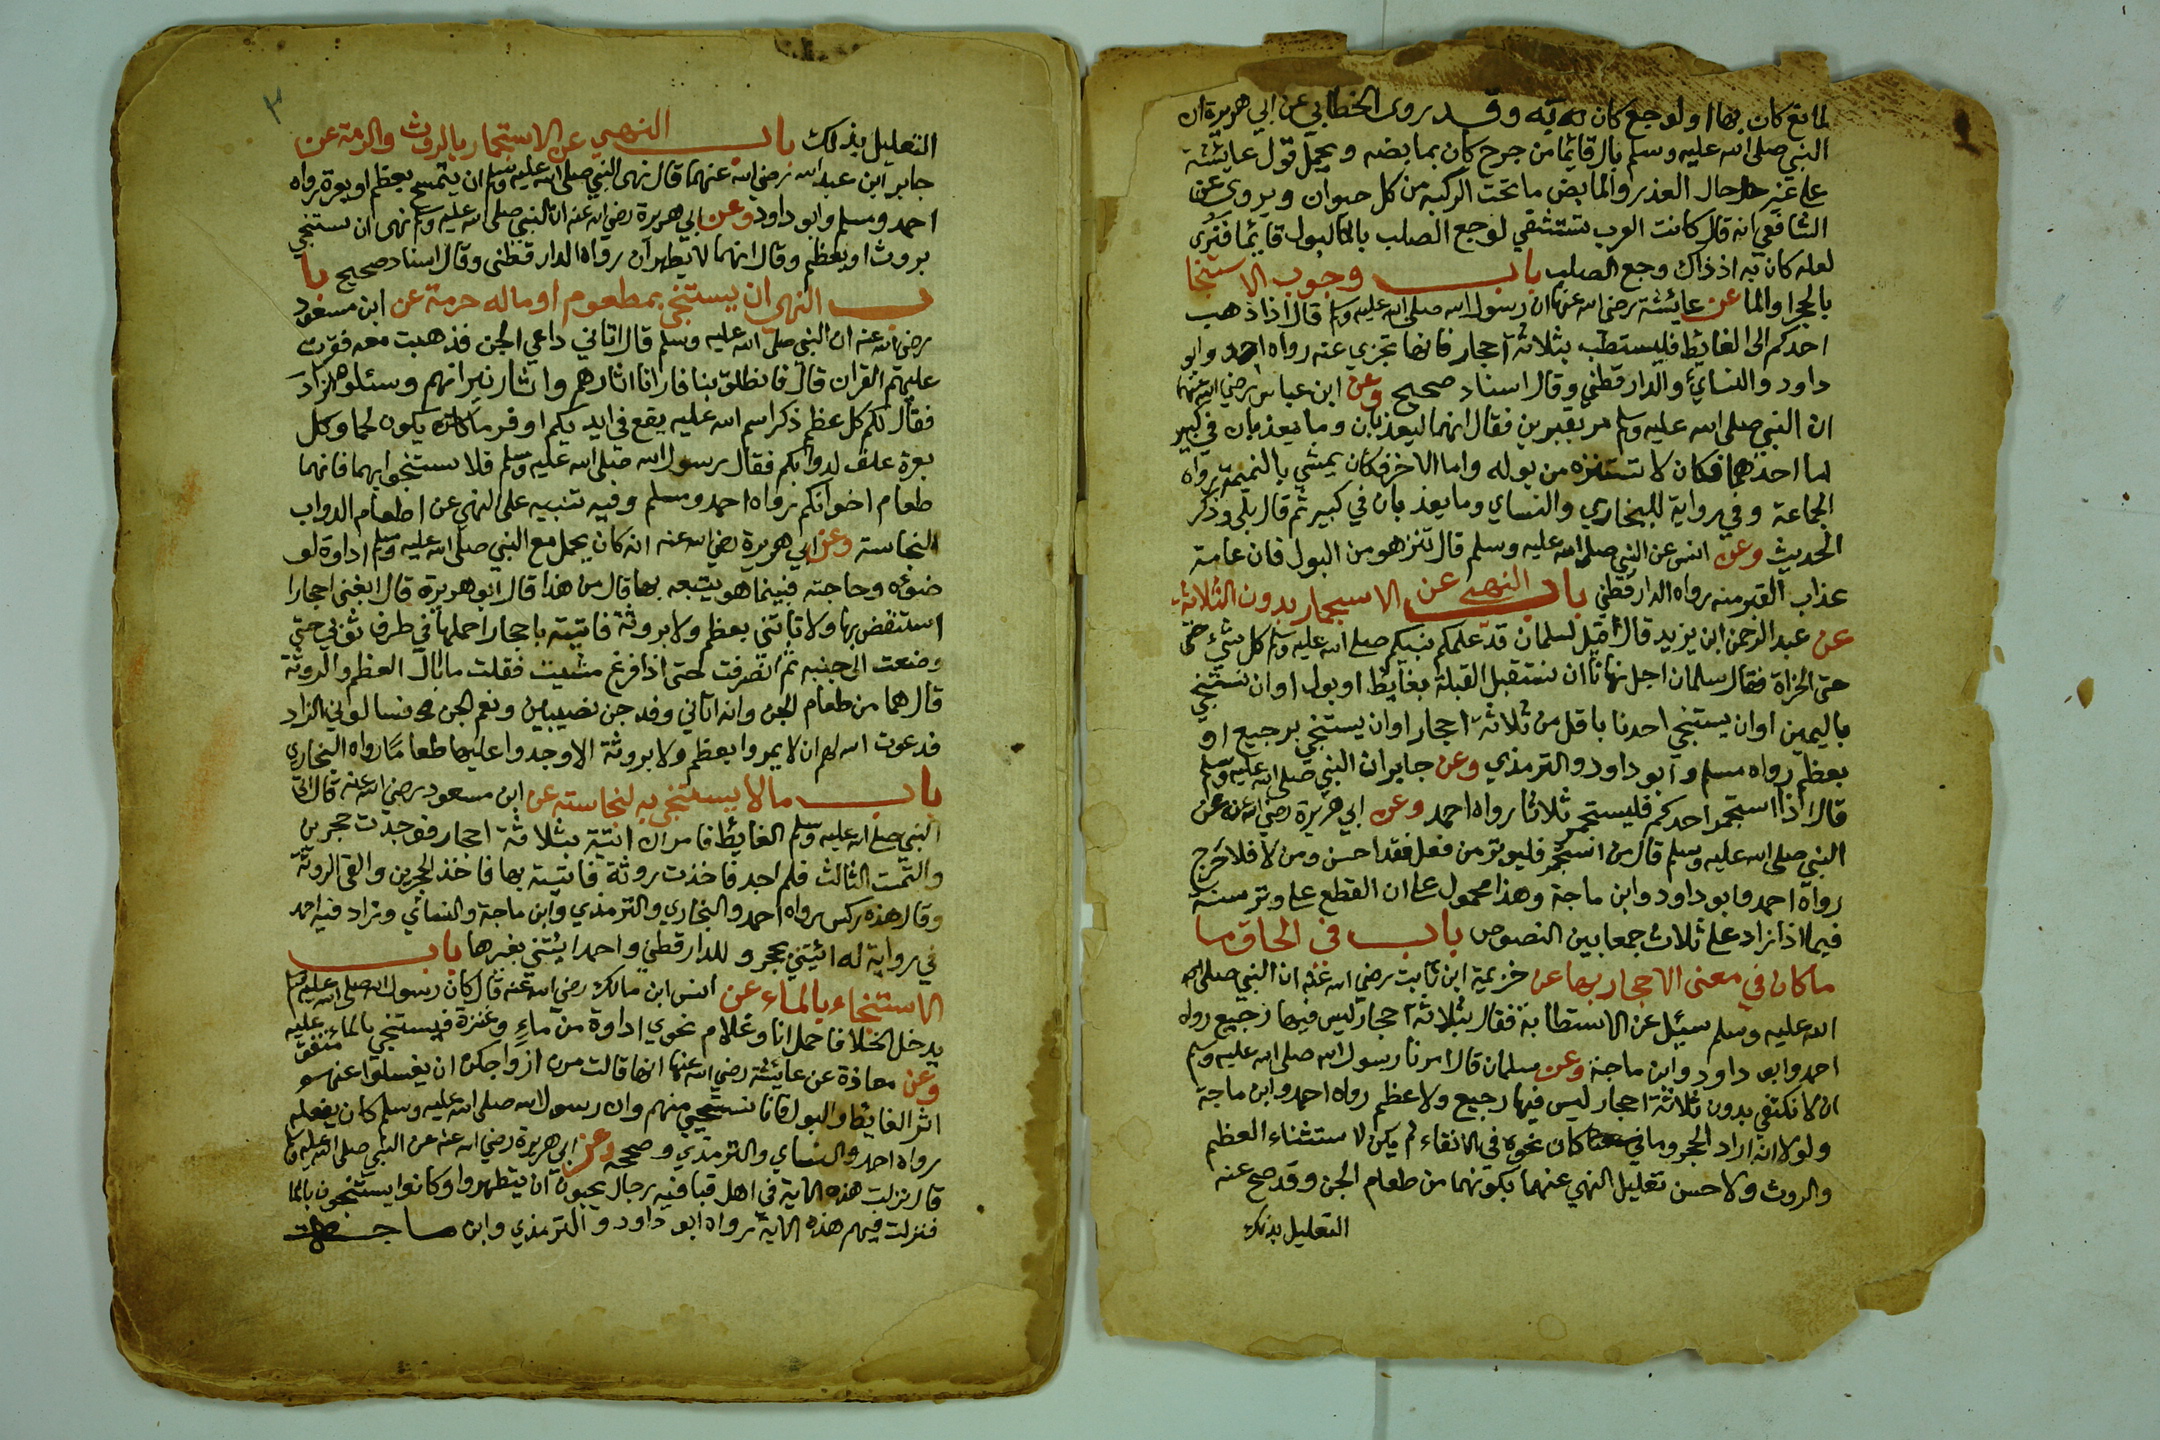 لمانع كان بها اولوجع كان به وقد روى الخطابي عن ابي هريرة ان
النبي صلى الله عليه وسلم بال قائما من جرح كان بمابضه ويحمل قول عايشة
على غير حال العذر والمابض ما تحت الركبه من كل حيوان ويروى عن
الشافعي انه قال كانت العرب تستشفي لوجع الصلب بالبول قايما فترى
لعله كان به اذ ذاك وجع الصلب باب وجوب الاستنجا
بالحجر او الما عن عايشة رضي الله عنها ان رسول الله صلى الله عليه وسلم قال اذا ذهب
احدكم الى الغايط فليستطب بثلاثة احجار فانها تجزي عنه رواه احمد وابو
داود والنساي والدارقطني وقال اسناد صحيح وعن ابن عباس رضي الله عنهما
ان النبي صلى الله عليه وسلم مر بقبرين فقال انهما ليعذبان وما يعذبان في كبير
اما احدهما فكان لا تستنزه من بوله واما الاخر فكان يمشي بالنميمة رواه
الجماعة وفي رواية للبخاري والنساي وما يعذبان في كبير ثم قال بلى وذكر
الحديث وعن انس عن النبي صلى الله عليه وسلم قال تنزهو من البول فان عامة
عذاب القبر منه رواه الدارقطني باب النهي عن الاسجمار بدون الثلاثة
عن عبد الرحمن ابن يزيد قال قيل لسلمان قد علمكم نبيكم صلى الله عليه وسلم كل شيء حتى
حتى الخراة فقال سلمان اجل نهانا ان نستقبل القبلة بغايط او بول او ان نستنجي
باليمين او ان يستنجي احدنا باقل من ثلاثة احجار او ان يستنجي برجيع او
بعظم رواه مسلم وابو داود والترمذي وعن جابر ان النبي صلى الله عليه وسلم
قال اذا استجمر احدكم فليستجمر ثلاثا رواه احمد وعن ابي هريرة رضي الله عنه عن
النبي صلى الله عليه وسلم قال من استجمر فليوتر من فعل فقد احسن ومن لا فلا حرج
رواه احمد وابو داود وابن ماجة وهذا محمول على ان القطع على وتر سنة
فيما اذا زاد على ثلاث جمعا بين النصوص باب في الحاق ما
ما كان في معنى الاحجار بها عن خزيمة ابن ثابت رضي الله عنه ان النبي صلى الله
الله عليه وسلم سيل عن الاستطابة فقال بثلاثة احجار ليس فيها رجيع رواه
احمد وابو داود وابن ماجة وعن سلمان قال امرنا رسول الله صلى الله عليه وسلم
ان لا نكتفي بدون ثلاثة احجار ليس فيها رجيع ولا عظم رواه احمد وابن ماجة
ولولا انه اراد الحجر وما كان نحوه في الانقاء لم يكن لاستثناء العظم
والروث ولا حسن تعليل النهي عنهما بكونهما من طعام الجن وقد صح عنه
التعليل بذلك
٣
التعليل بذلك باب النهي عن الاستجمار بالروث والرمة عن
جابر ابن عبد الله رضي الله عنهما قال نهى النبي صلى الله عليه وسلم ان يتمسح بعظم او بعرة رواه
احمد ومسلم وابو داود وعن ابي هريرة رضي الله عنه ان النبي صلى الله عليه وسلم نهى ان يستنجي
بروث او بعظم وقال انهما لا يطهران رواه الدارقطني وقال اسناد صحيح با
ب النهي ان يستنجي بمطعوم او ماله حرمة عن ابن مسعود
رضي الله عنه ان النبي صلى الله عليه وسلم قال اتاني داعي الجن فذهبت معه فقرت
عليهم القران قال فانطلق بنا فارانا اثارهم واثار نيرانهم وسئلوه الزاد
فقال لكم كل عظم ذكر اسم الله عليه يقع في ايديكم اوفر ما يكون لحما وكل
بعرة علف لدوابكم فقال رسول الله صلى الله عليه وسلم فلا تستنجوا بهما فانهما
طعام اخوانكم رواه احمد ومسلم وفيه تنبيه على النهي عن اطعام الدواب
النجاسة وعن ابي هريرة رضي الله عنه انه كان يحمل مع النبي صلى الله عليه وسلم اداوة لو
ضوئه وحاجته فبينما هو يتبعه بها قال من هذا قال ابو هريرة قال ابغني احجارا
استنفض بها ولا تاتني بعظم ولا بروثة فاتيته باحجار احملها في طرف ثوبي حتى
وضعت الى جنبه ثم انصرفت حتى اذا فرغ مشيت فقلت ما بال العظم والروثة
قال هما من طعام الجن وانه اتاني وفد جن نصيبين ونعم الجن فسالوني الزاد
فدعوت الله لهم ان لا يمروا بعظم ولا بروثة الا وجدوا عليها طعاما رواه البخاري
باب مالا يستنجي به لنجاسته عن ابن مسعود رضي الله عنه قال اتى
النبي صلى الله عليه وسلم الغائط فامرني ان اتيه بثلاثة احجار فوجدت حجرين
والتمست الثالث فلم اجد فاخذت روثة فاتيته بها فاخذ الحجرين والقى الروثة
وقال هذه ركس رواه احمد والبخاري والترمذي وابن ماجة والنسائي وزاد فيه احمد
في رواية له ائيتني بحجر وللدارقطني واحمد ائتني بغيرها باب
الاستنجاء بالماء عن انس ابن مالك رضي الله عنه قال كان رسول الله صلى الله عليه وسلم
يدخل الخلا فاحمل انا وغلام نحوي اداوة من ماء وعنزة فيستنجي بالماء متفق عليه
وعن معاذة عن عايشة رضي الله عنها انها قالت مرن ازواجكن ان يغسلوا عنهم
اثر الغايط والبول فانا نستحيي منهم وان رسول الله صلى الله عليه وسلم كان يفعله
رواه احمد والنساي والترمذي وصححه وعن ابي هريرة رضي الله عنه عن النبي صلى الله عليه وسلم
قال نزلت هذه الاية في اهل قبا فيه رجال يحبون ان يتطهروا وكانوا يستنجون بالما
فنزلت فيهم هذه الاية رواه ابو داود والترمذي وابن ماجة